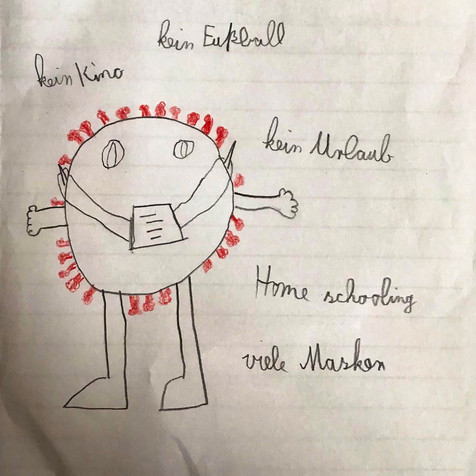 kein Fußball
kein Kino
kein Urlaub
Home schooling
viele Masken